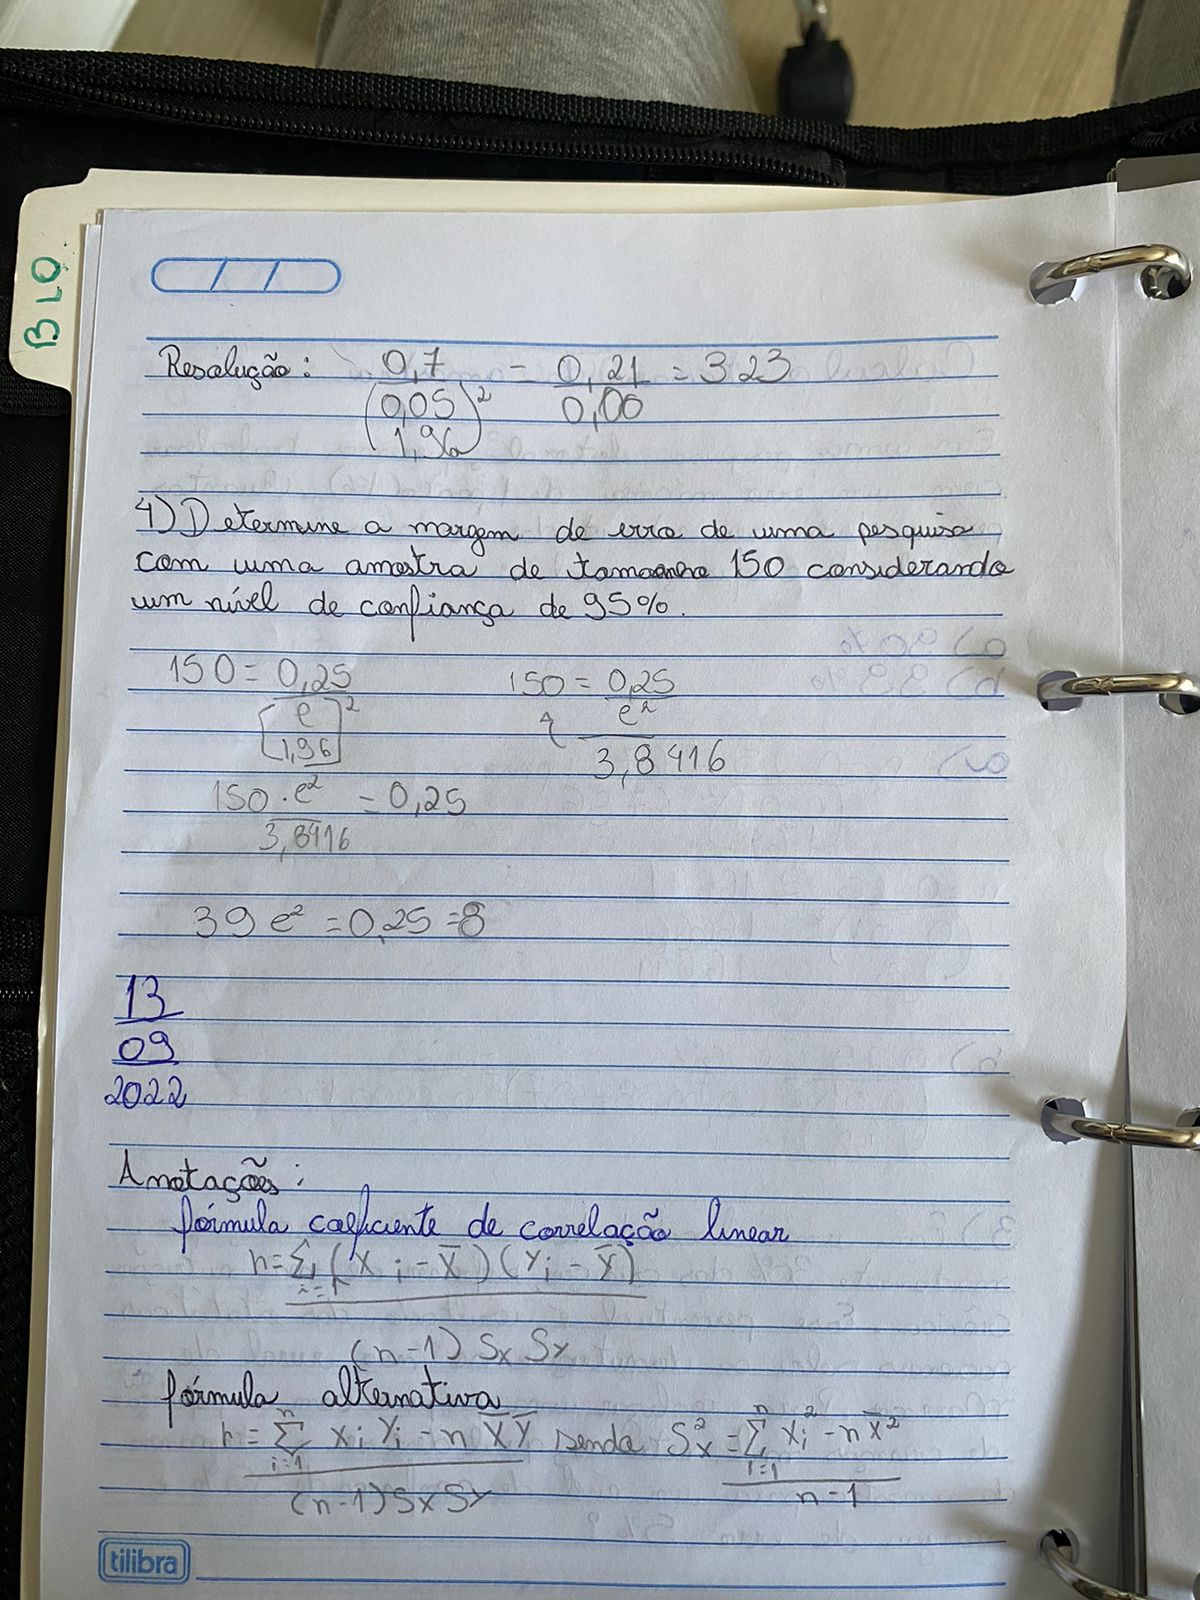 BLO
Resolução: 0,7 = 0,21 = 323
(0,05)² 0,00
1,96
4) Determine a margem de erro de uma pesquisa
com uma amostra de tamanho 150 considerando
um nível de confiança de 95%.
150 = 0,25 150 = 0,25
[e]² e²
1,96 3,8416
150 . e² = 0,25
3,8416
39 e² = 0,25 = 8
13
09
2022
Anotações:
fórmula coeficiente de correlação linear
r = Σ (Xi - X̅)(Yi - Y̅)
i=1
(n-1) Sx Sy
fórmula alternativa
n n
r = Σ Xi Yi - n X̅ Y̅ sendo S²x = Σ Xi² - n X̅²
i=1 i=1
(n-1) Sx Sy n-1
tilibra